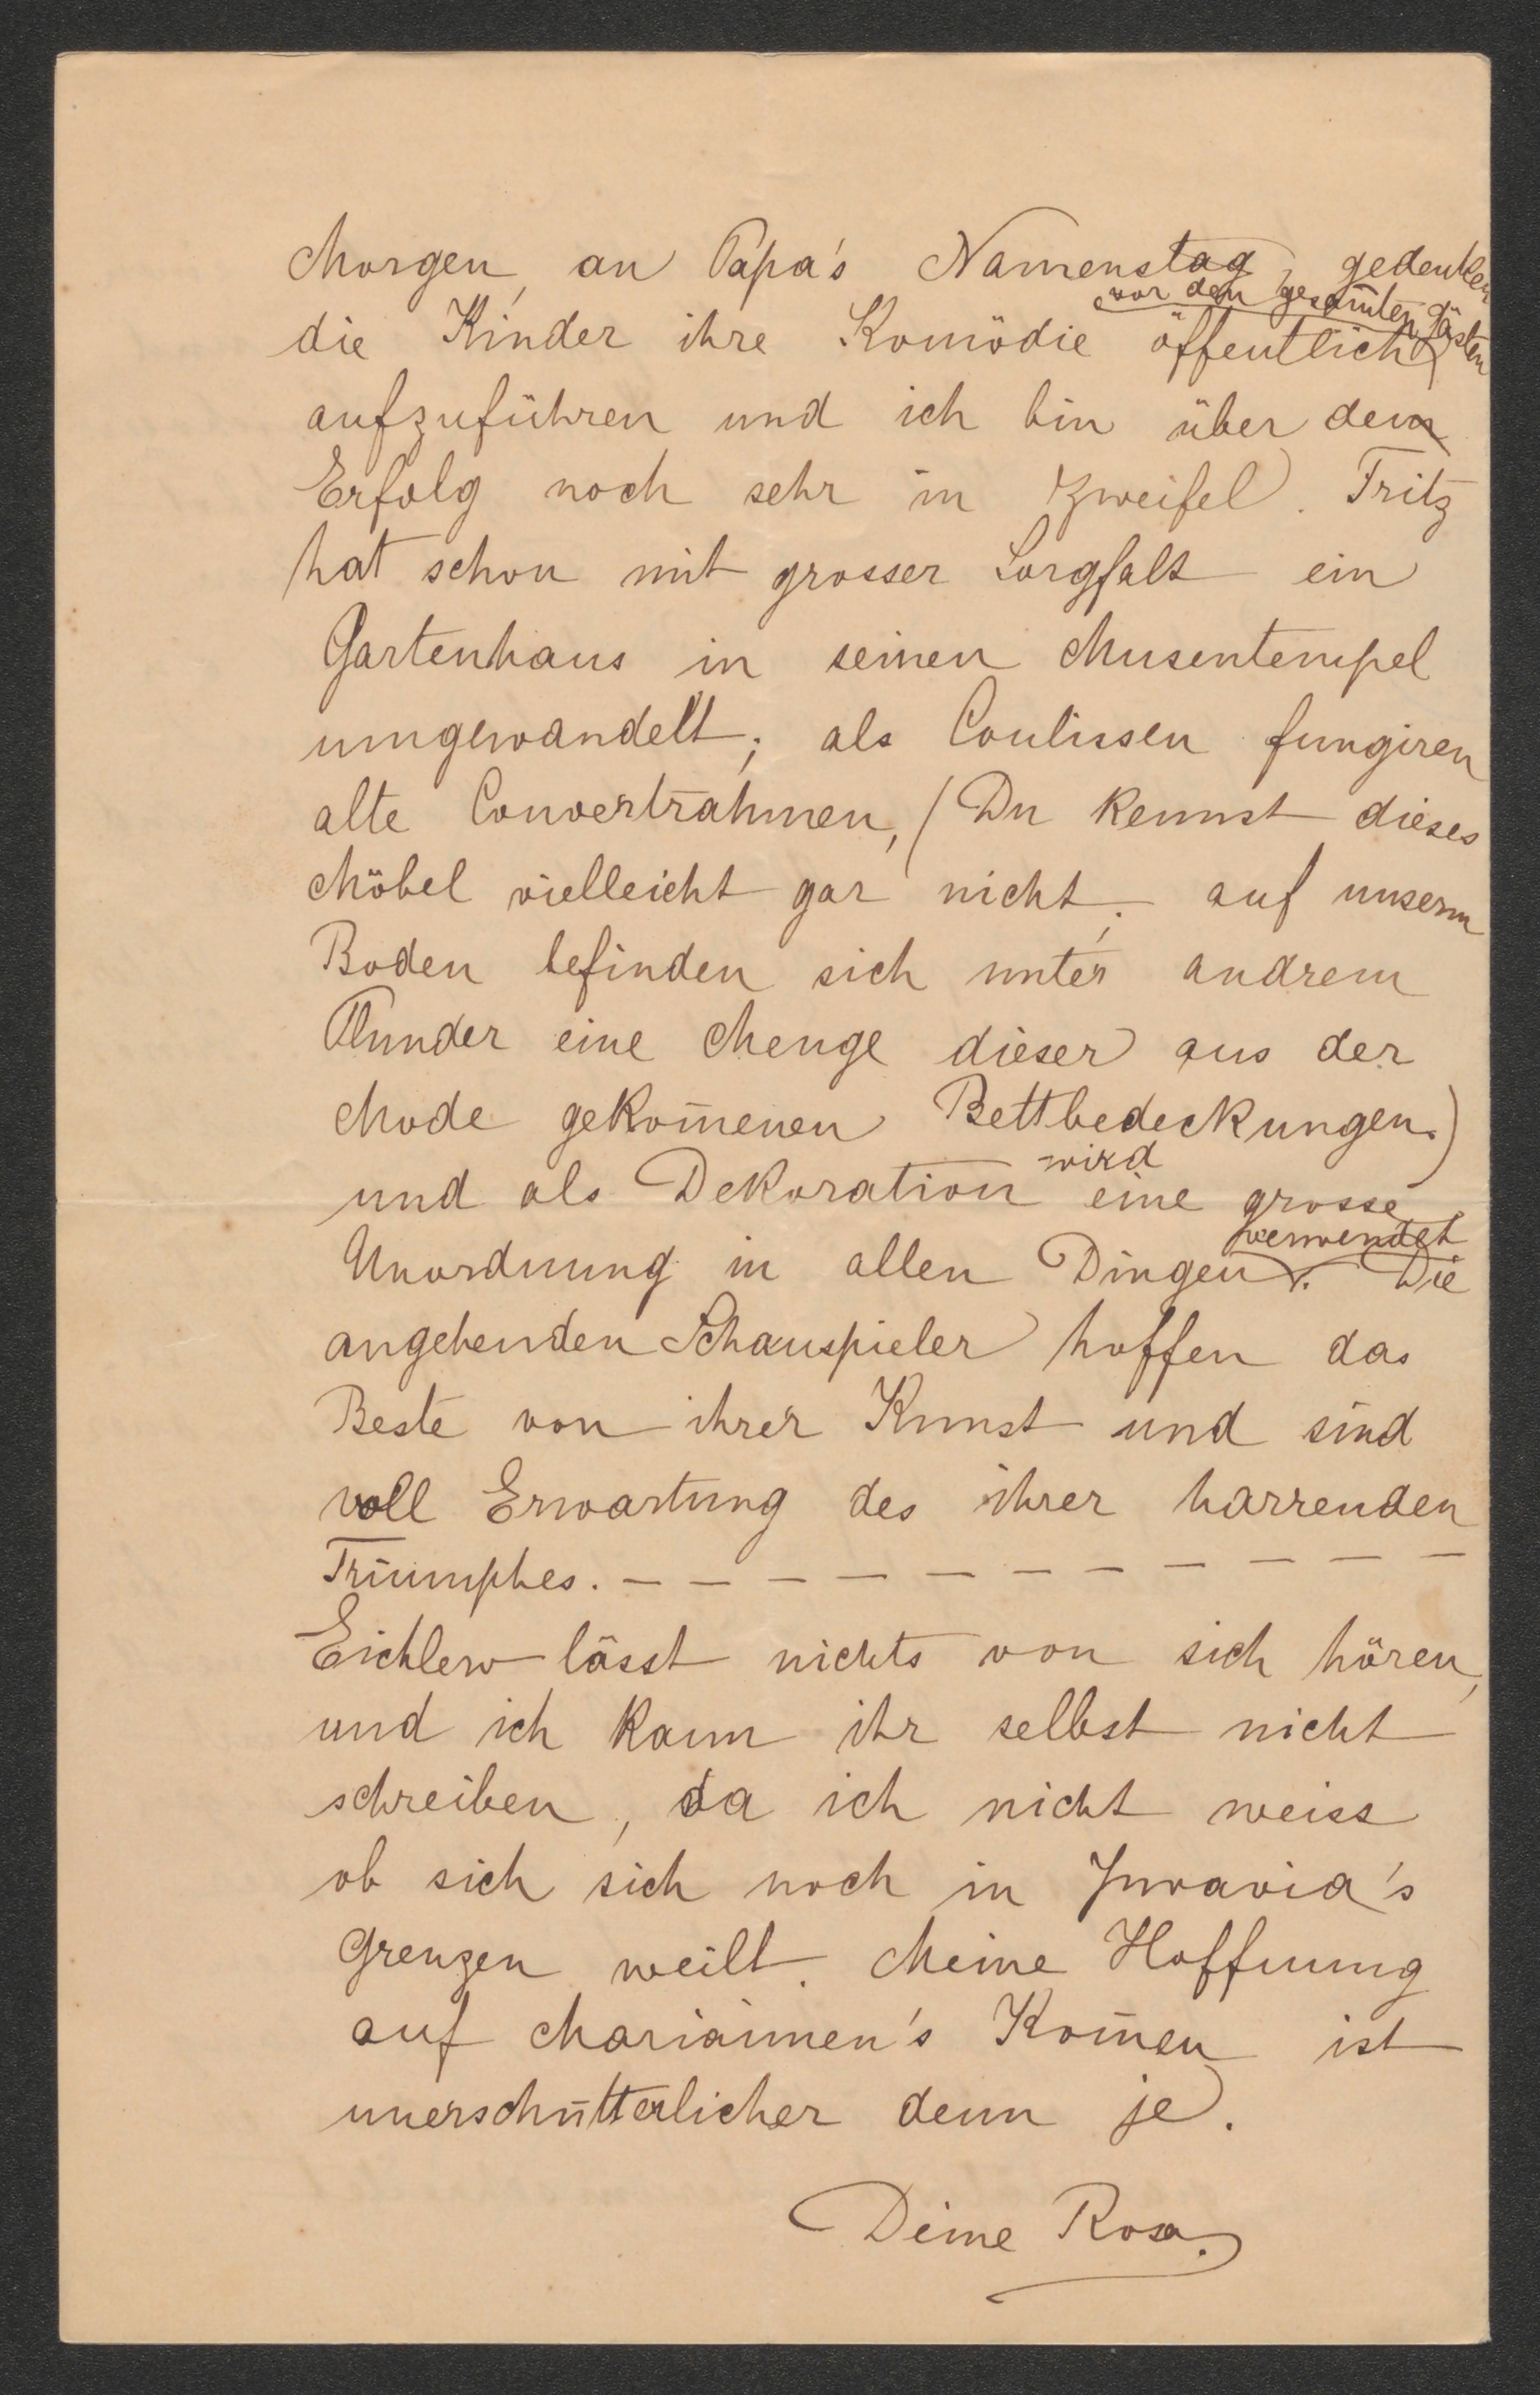 Morgen, an Papa's Namenstag, gedenken
die Kinder ihre Komödie öffentlich vor den gesam̄ten Gästen
aufzuführen und ich bin über den
Erfolg noch sehr in Zweifel. Fritz
hat schon mit grosser Sorgfalt ein
Gartenhaus in seinen Musentempel
umgewandelt; als Coulissen fungiren
alte Convertrahmen, (Du kennst dieses
Möbel vielleicht gar nicht; auf unserm
Boden befinden sich unter andrem
Plunder eine Menge dieser aus der
Mode gekom̄enen Bettbedeckungen.)
und als Dekoration wird eine grosse
Unordnung in allen Dingen verwendet. Die
angehenden Schauspieler hoffen das
Beste von ihrer Kunst und sind
voll Erwartung des ihrer harrenden
Triumphes. – – – – – – – – – –
Eichlerw lässt nichts von sich hören,
und ich kann ihr selbst nicht
schreiben, da ich nicht weiss
ob sich sich noch in Juvavia's
Grenzen weilt. Meine Hoffnung
auf Mariannen's Kom̄en ist
unerschütterlicher denn je.
Deine Rosa.